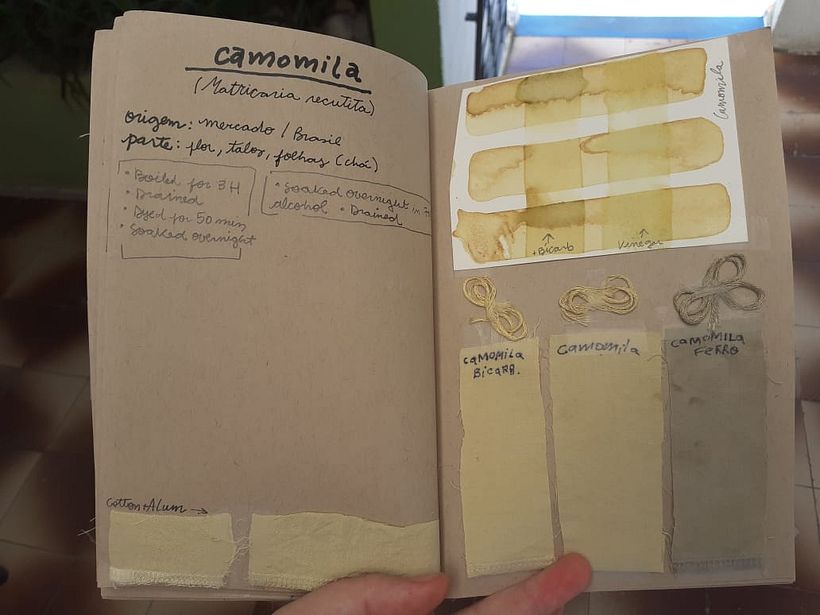 camomila
(Matricaria recutita)
origem: mercado / Brasil
parte: flor, talos, folhas (chá)
• Boiled for 3H
• Drained
• Dyed for 50 min
• Soaked overnight
• Soaked overnight in
alcohol • Drained
Cotton+Alum →
Camomila
+Bicarb
Vinegar
CAMOMILA
BICARB.
Camomila
CAMOMILA
FERRO